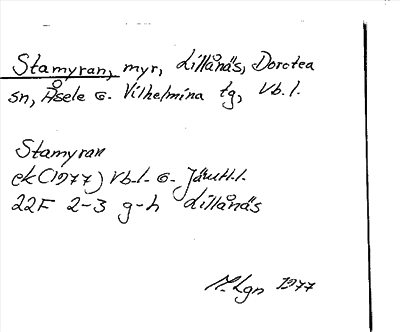 Stamyran, myr, Lillånäs, Dorotea
sn, Åsele o. Vilhelmina tg, Vb.l.
Stamyran
ek (1977) Vb.l. o. Jämtl.l.
22F 2-3 g-h Lillånäs
M.Lgn 1977